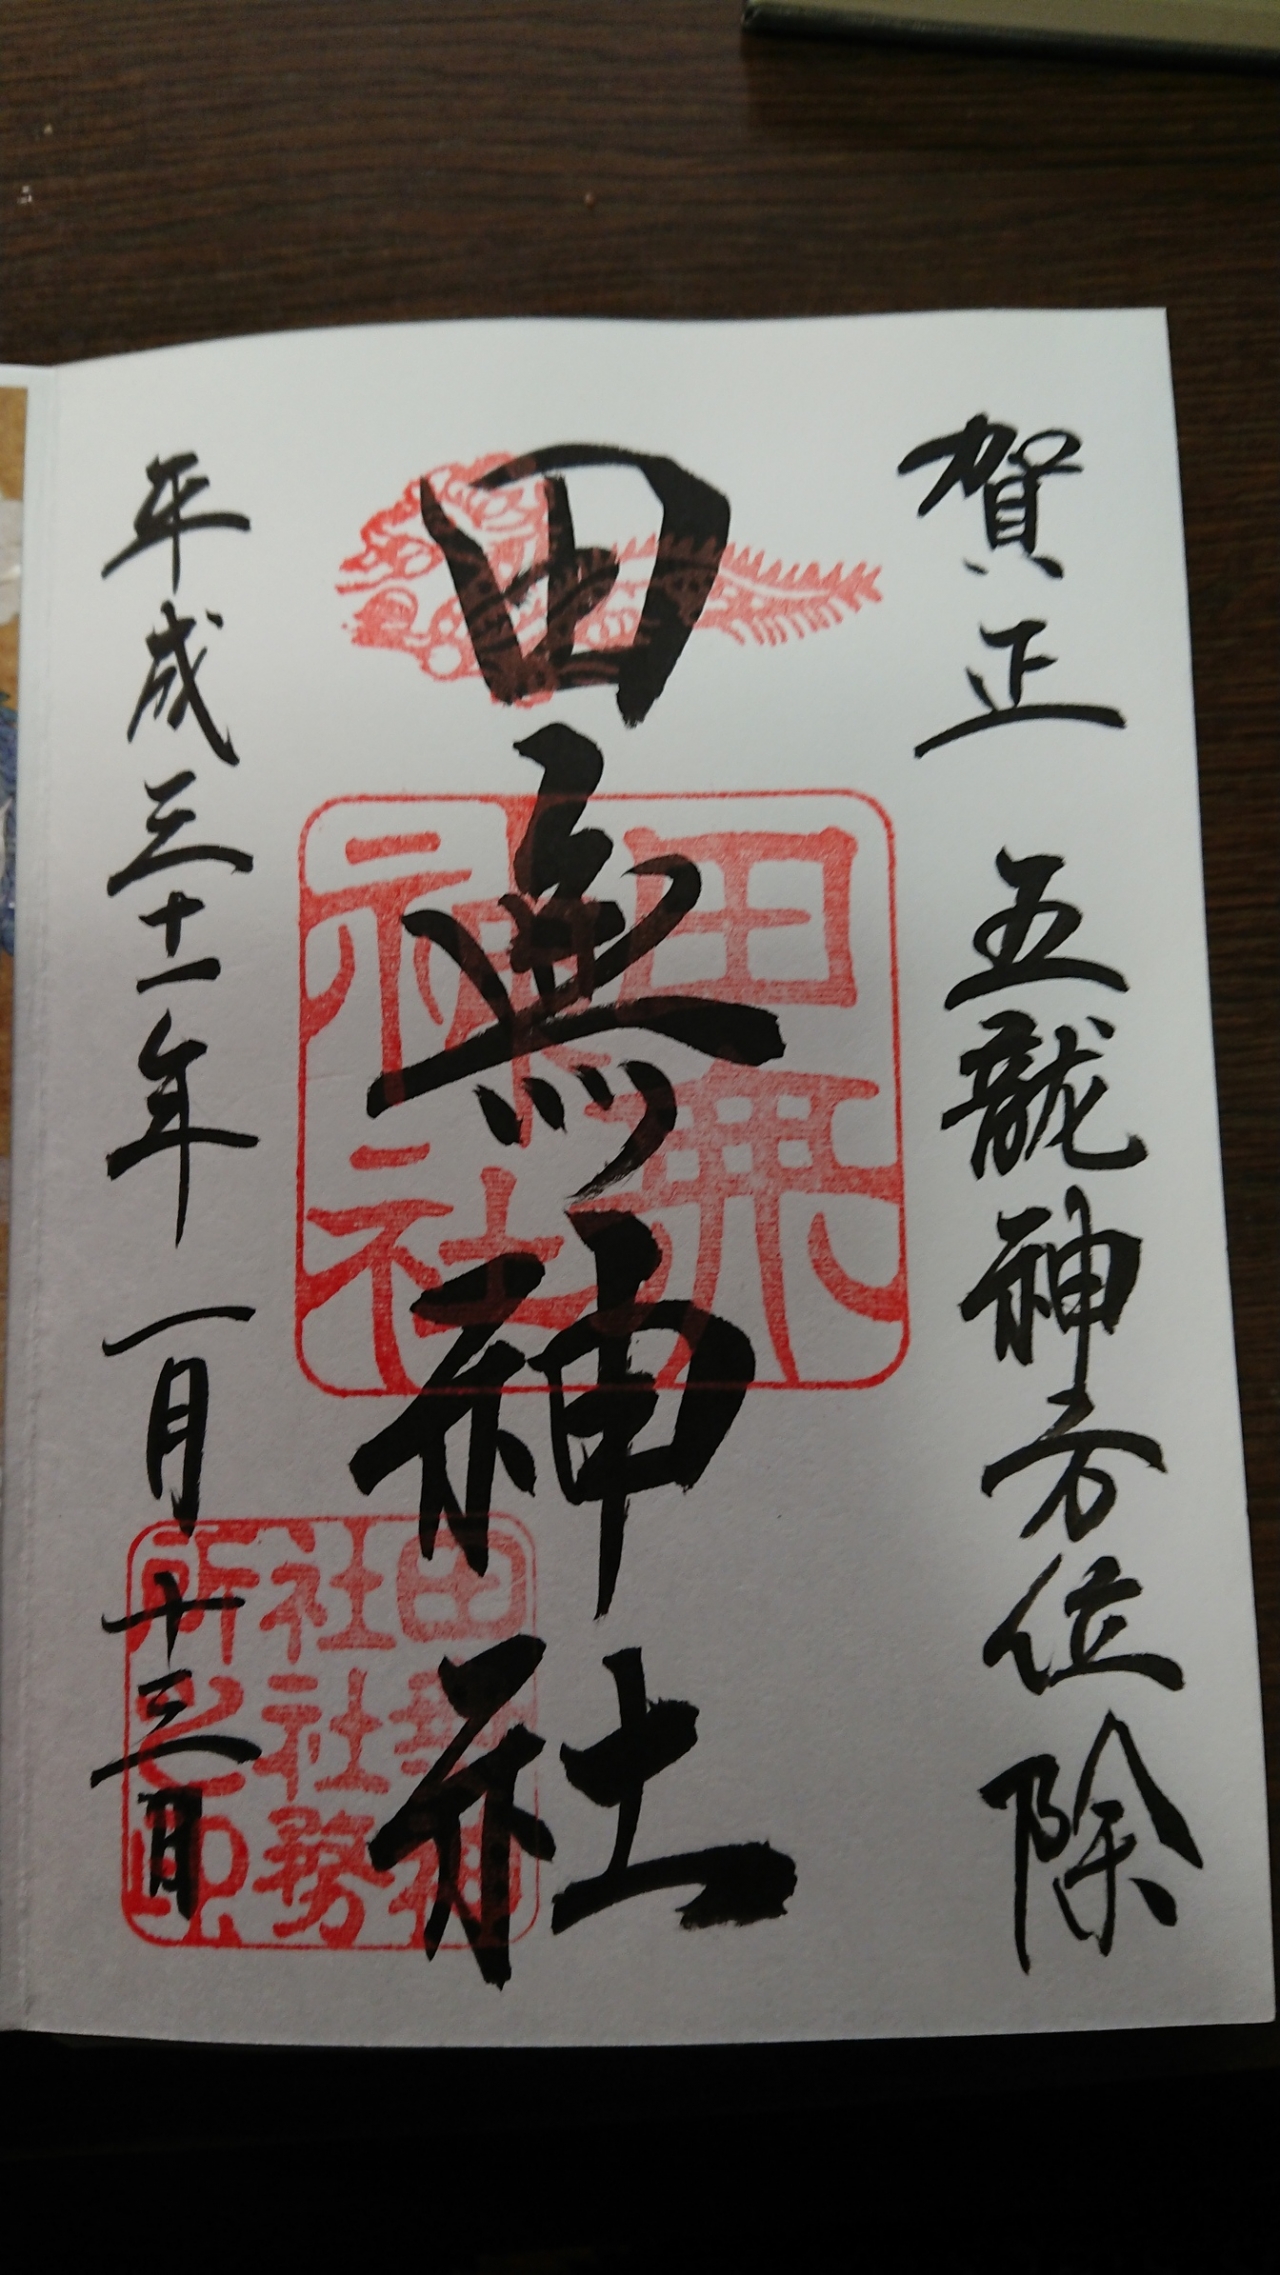 賀正 五龍神方位除
田無神社
田無神社
田無神社社務所之印
平成三十一年 一月十三日